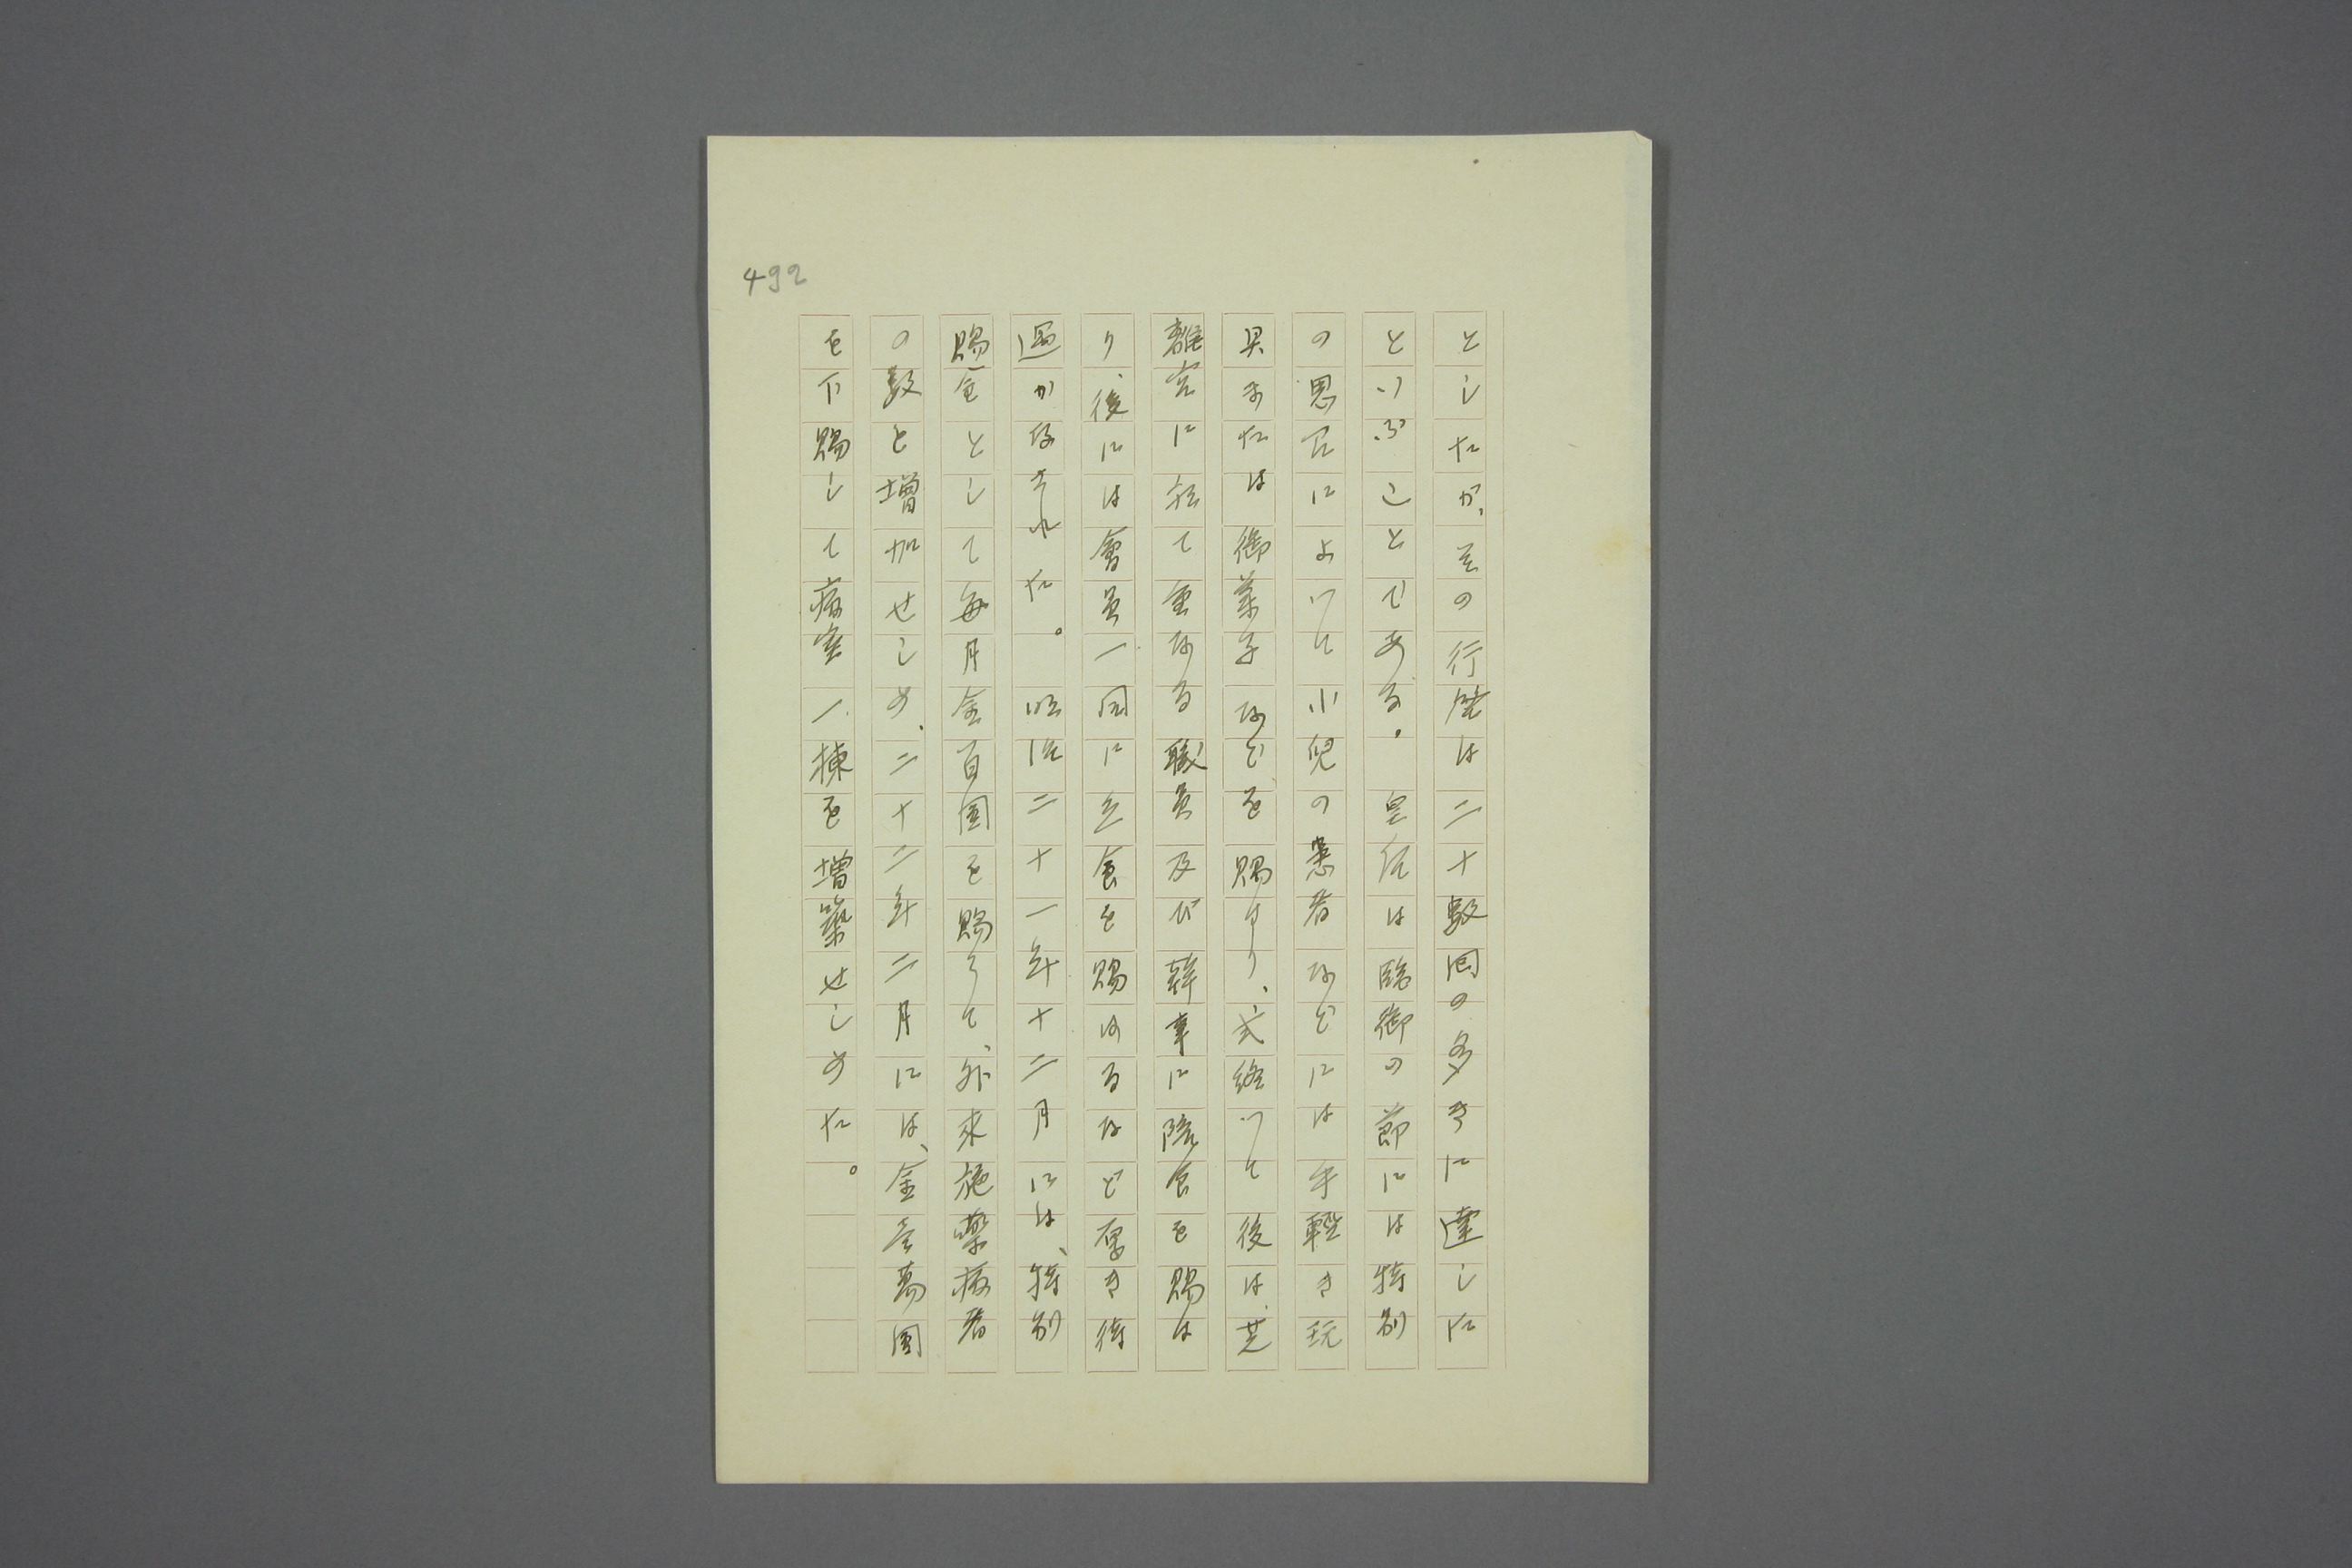 492
としたが、其の行啓は二十數回の多きに達した
といふことである。皇后は臨御の節には特別
の思召によつて小兒の患者などには手輕き玩
具または御菓子などを賜はり、式終つて後は、芝
離宮に於て重なる職員及び幹事に陪食を賜は
り、後には會員一同に立食を賜はるなど厚き待
遇かなされた。明治二十一年十二月には、特別
賜金として毎月金百圓を賜うて、外來施藥病者
の數と増加せしめ、二十二年二月には、金壱萬圓
を下賜して病室一棟を増築せしめた。